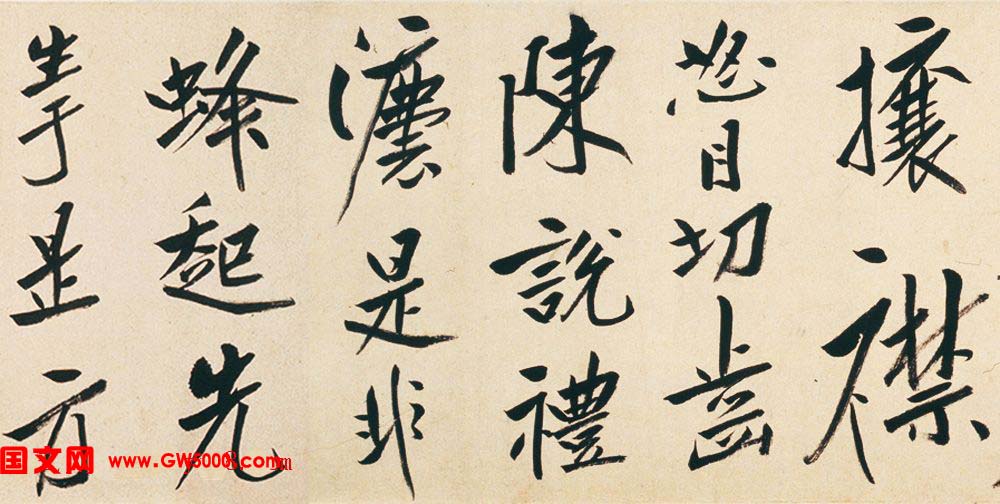 攘襟
怒目切齒
陳說禮
灋是非
蜂起先
生于是方
国文网